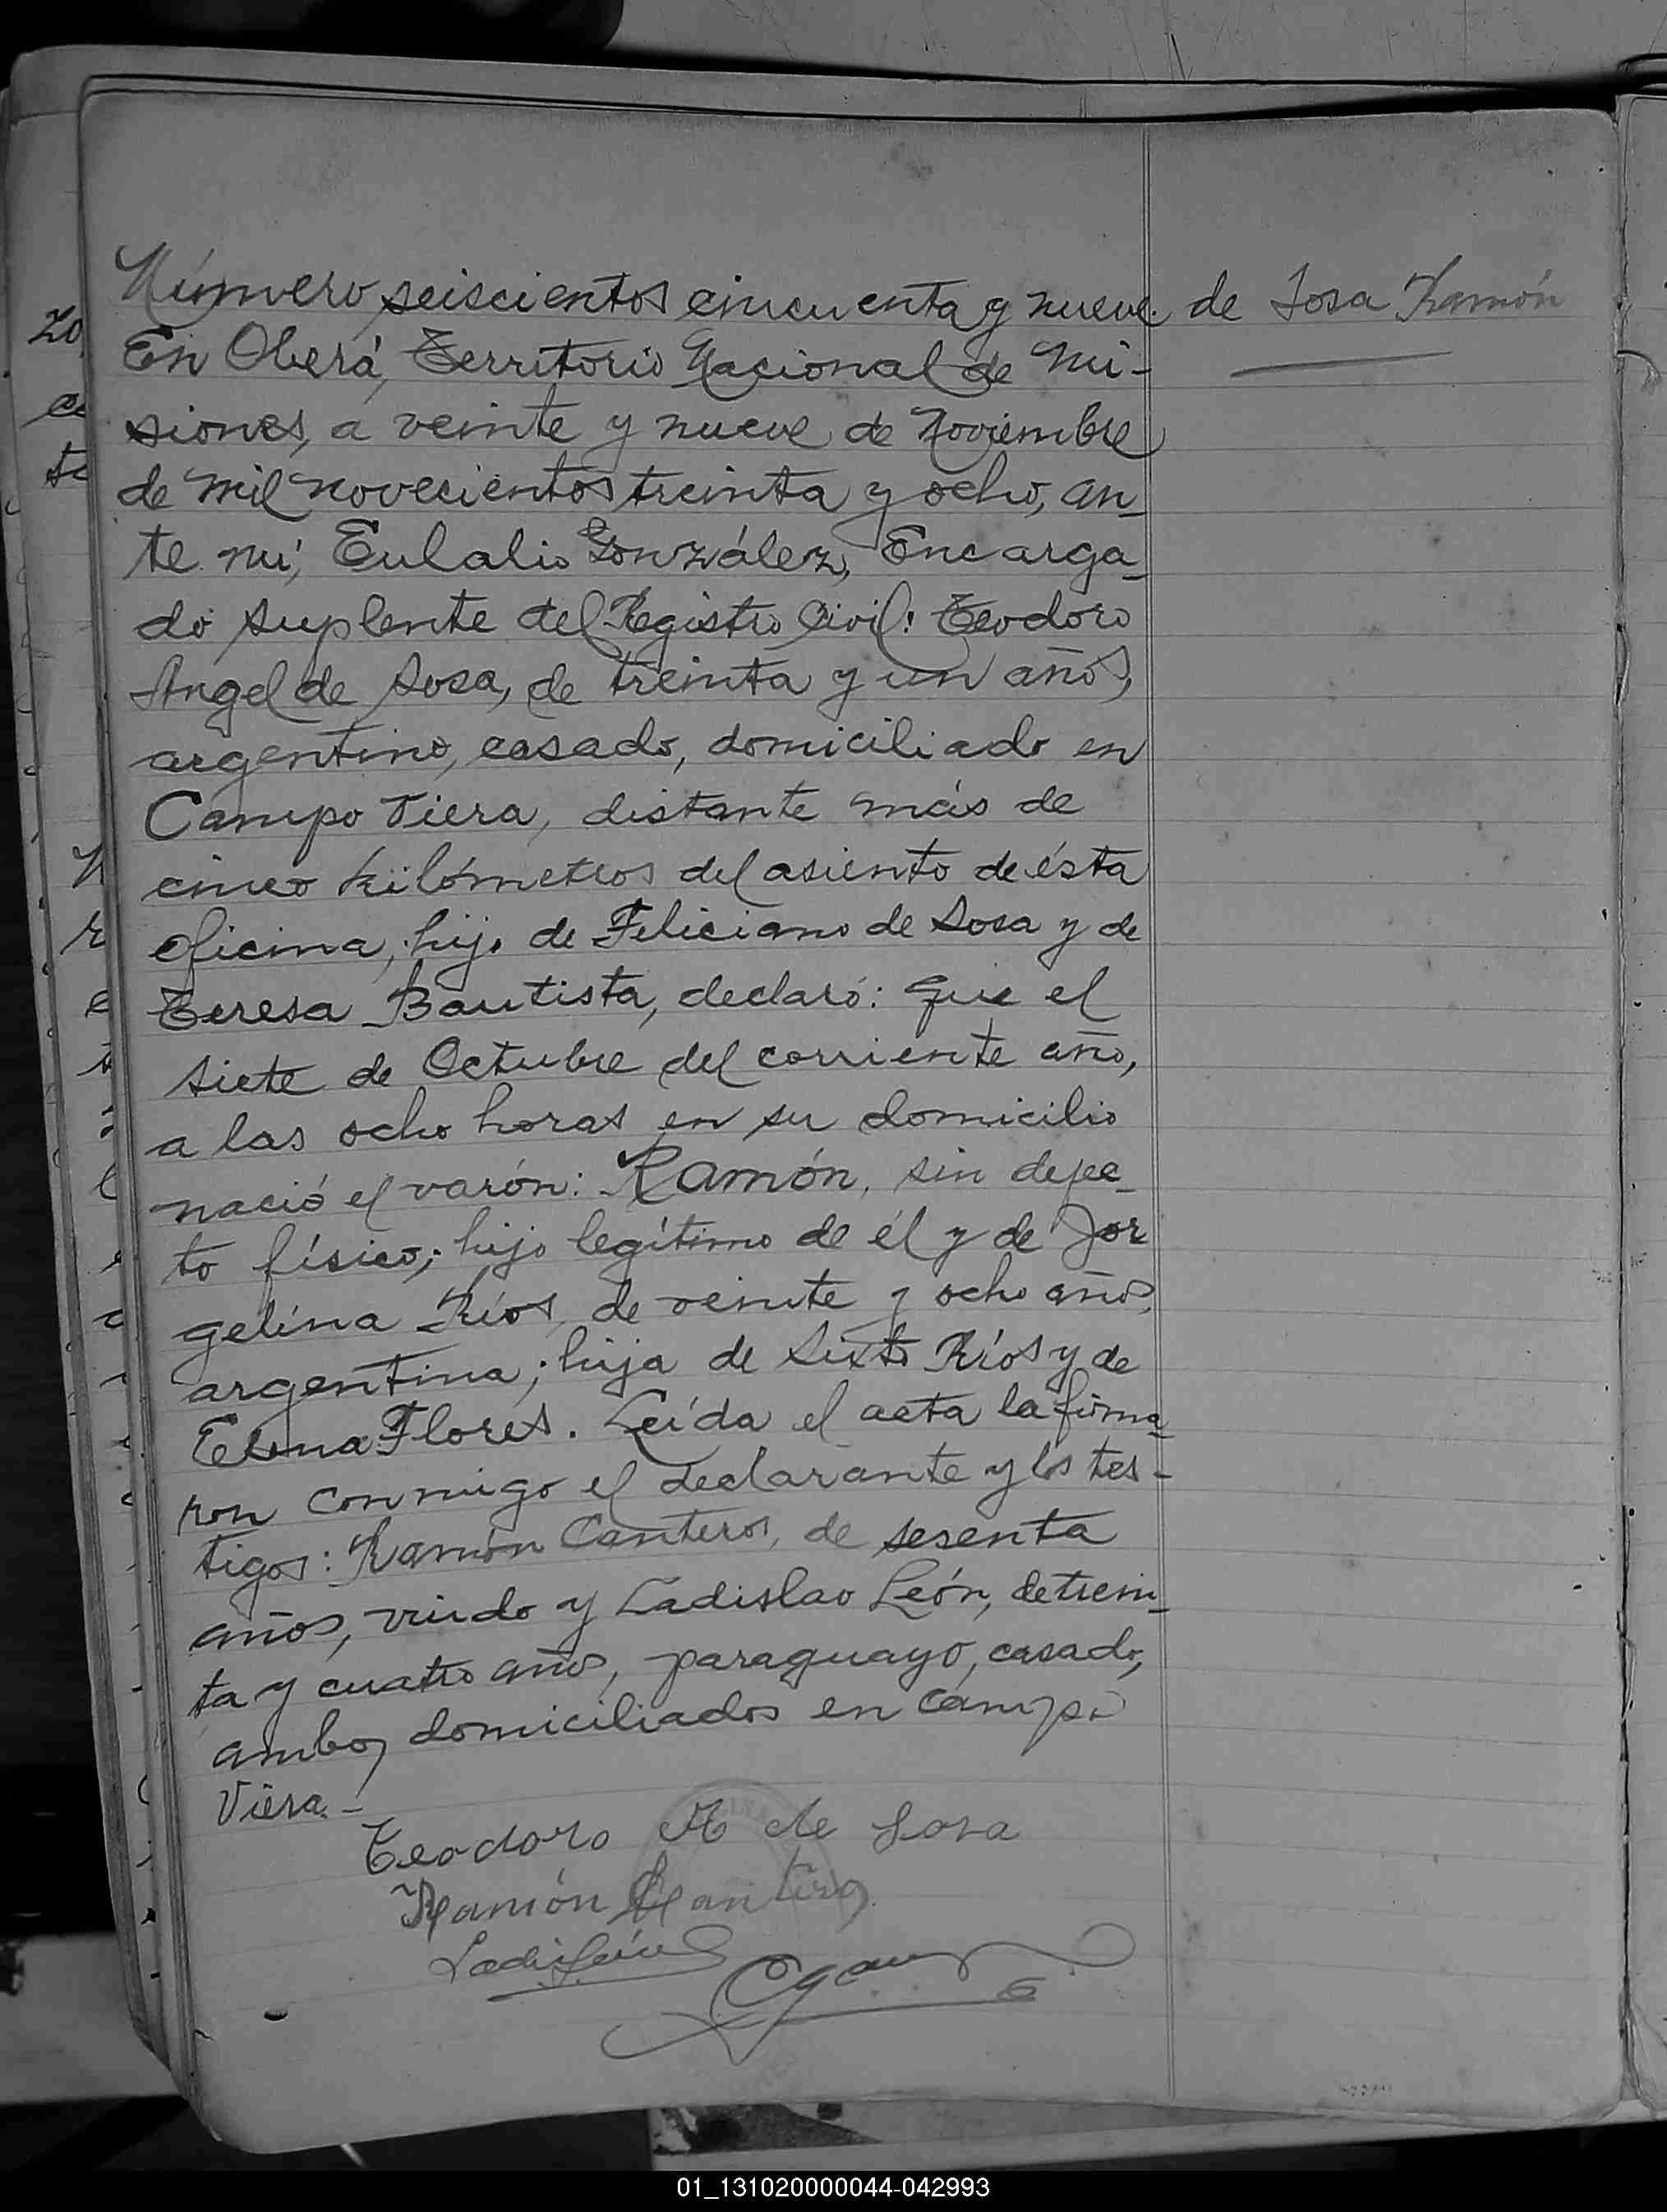 Número seiscientos cincuenta y nueve.
de Sosa Ramón
En Oberá, Territorio Nacional de Mi-
siones, a veinte y nueve de Noviembre
de mil novecientos treinta y ocho, an-
te mí, Eulalio González, Encarga-
do suplente del Registro Civil: Teodoro
Angel de Sosa, de treinta y un años,
argentino, casado, domiciliado en
Campo Viera, distante más de
cinco kilómetros del asiento de ésta
oficina, hijo de Feliciano de Sosa y de
Teresa Bautista, declaró: que el
siete de Octubre del corriente año,
a las ocho horas en su domicilio
nació el varón: Ramón, sin defec-
to físico; hijo legítimo de él y de Jor
gelina Ríos, de veinte y ocho años,
argentina; hija de Sixto Ríos y de
Elena Flores. Leída el acta la firma-
ron conmigo el declarante y los tes-
tigos: Ramón Canteros, de sesenta
años, viudo y Ladislao León, de trein-
ta y cuatro años, paraguayo, casado,
ambos domiciliados en Campo
Viera.-
Teodoro A de Sosa
Ramón Cantero
01_131020000044-042993